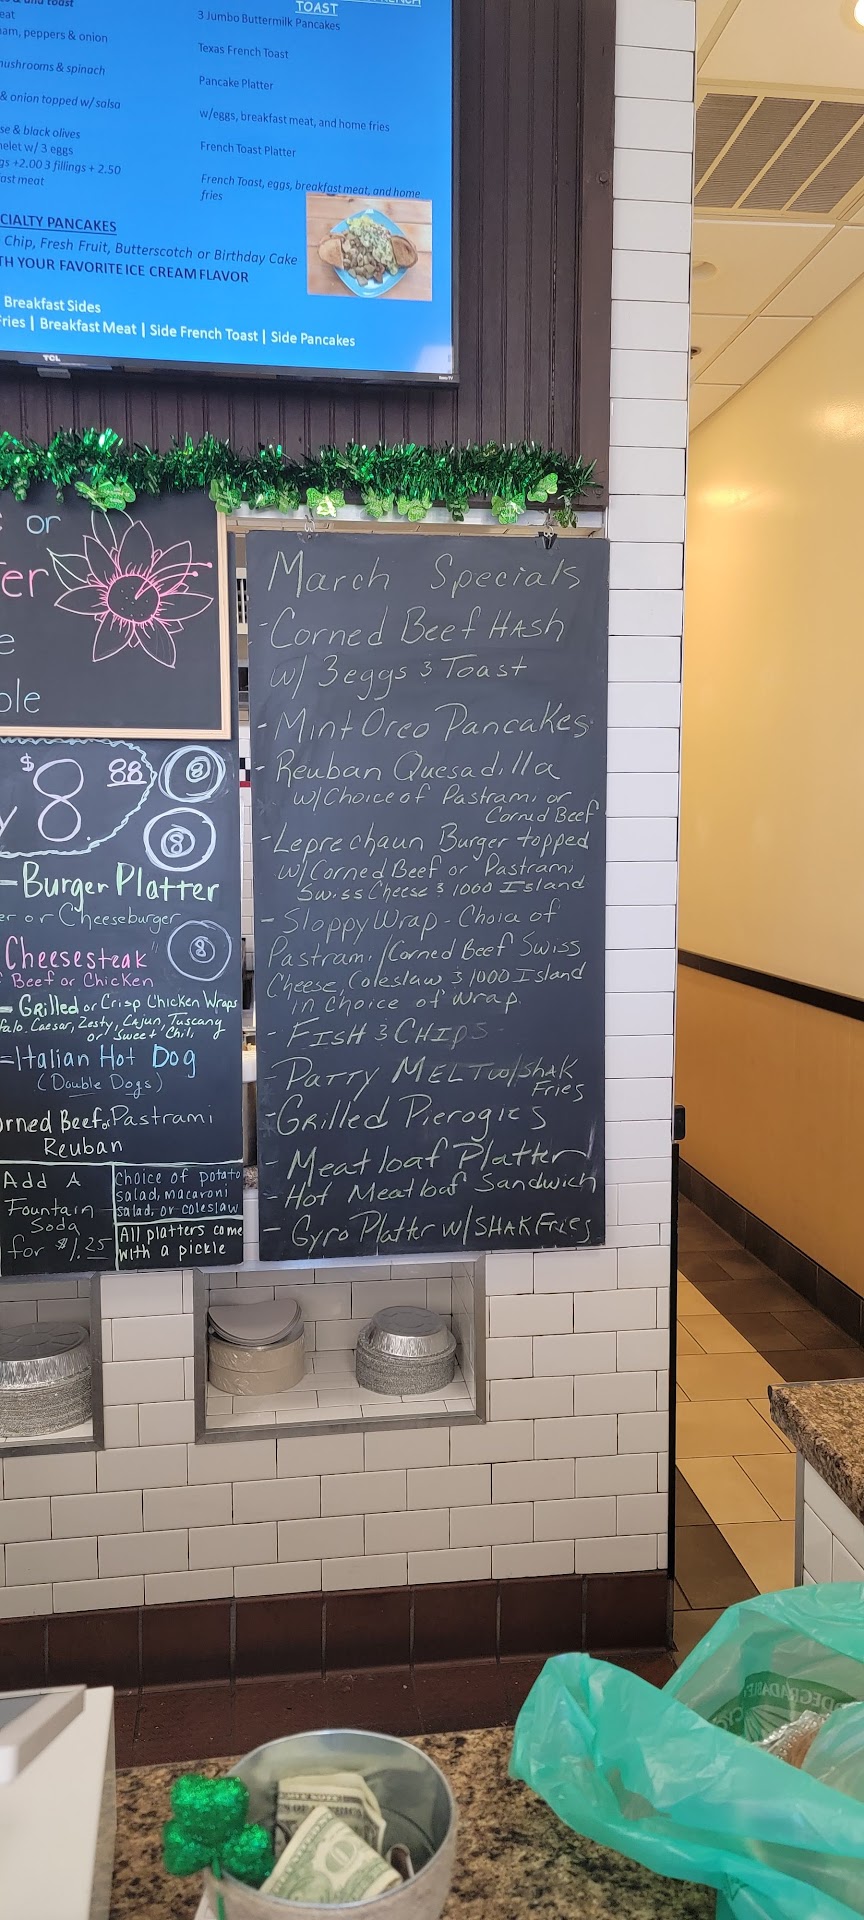 & onion topped w/ salsa
TOAST
3 Jumbo Buttermilk Pancakes
Texas French Toast
Pancake Platter
w/eggs, breakfast meat, and home fries
French Toast Platter
French Toast, eggs, breakfast meat, and home
fries
am, peppers & onion
mushrooms & spinach
se & black olives
elet w/ 3 eggs
gs +2.00 3 fillings + 2.50
ast meat
CIALTY PANCAKES
Chip, Fresh Fruit, Butterscotch or Birthday Cake
TH YOUR FAVORITE ICE CREAM FLAVOR
Breakfast Sides
Fries | Breakfast Meat | Side French Toast | Side Pancakes
TCL
or
er
e
ple
$8.88
8
8
y
- Burger Platter
er or Cheeseburger
Cheesesteak"
8
Beef or Chicken
- Grilled or Crisp Chicken Wraps
falo, Caesar, Zesty, Cajun, Tuscany
or Sweet Chili
= Italian Hot Dog
(Double Dogs)
orned Beef or Pastrami
Reuban
Add A
Fountain
Soda
for $1.25
Choice of potato
salad, macaroni
salad, or coleslaw
All platters come
with a pickle
March Specials
- Corned Beef Hash
w/ 3eggs & Toast
- Mint Oreo Pancakes
- Reuban Quesadilla
w/Choice of Pastrami or
Corned Beef
- Leprechaun Burger topped
w/Corned Beef or Pastrami
Swiss Cheese & 1000 Island
- Sloppy Wrap - Choice of
Pastrami/Corned Beef Swiss
Cheese, Coleslaw & 1000 Island
in Choice of Wrap.
- FISH & CHIPS
- Patty Melt w/shak
Fries
- Grilled Pierogies
- Meatloaf Platter
- Hot Meatloaf Sandwich
- Gyro Platter w/SHAK Fries